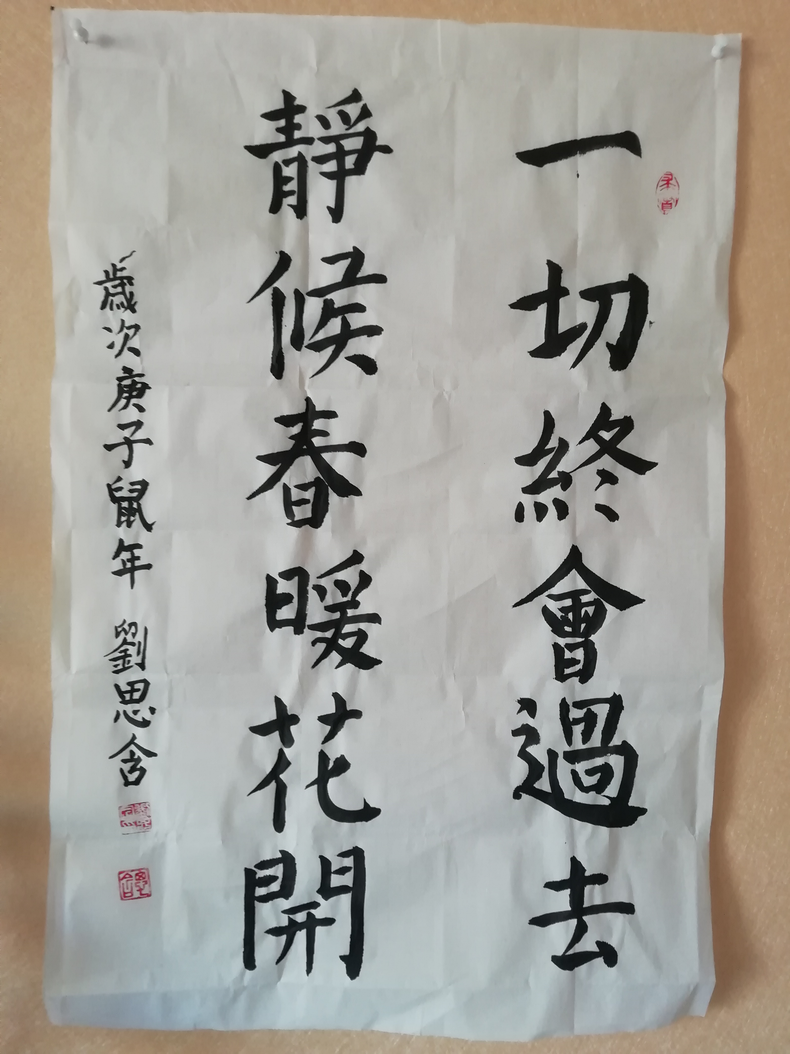 一切終會過去
靜候春暖花開
歲次庚子鼠年 劉思含